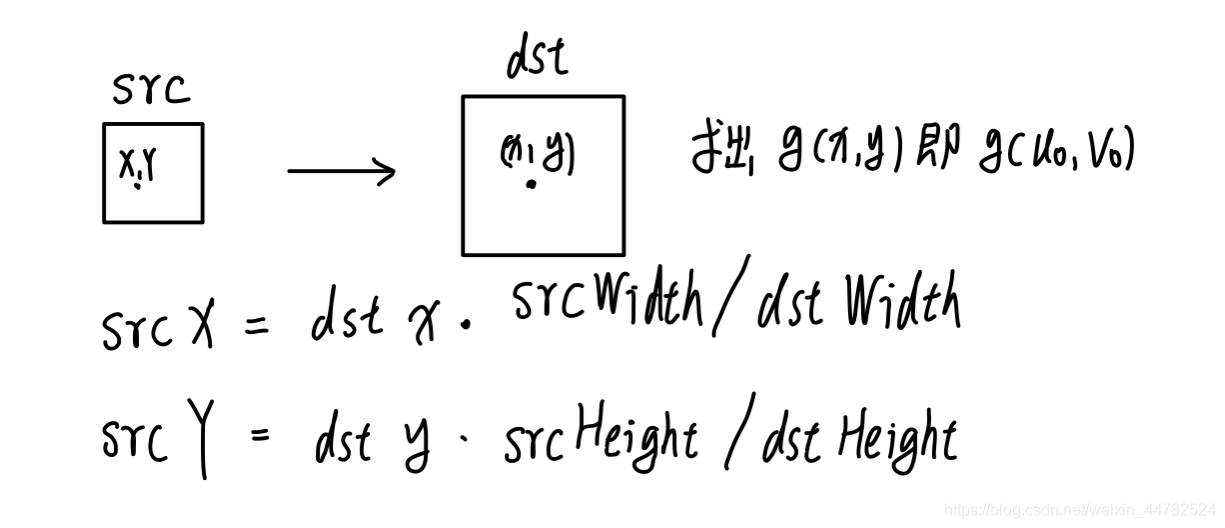 src
dst
X,Y
(x,y)
求出 g(x,y) 即 g(u₀,v₀)
src X = dst x · srcWidth / dst Width
src Y = dst y · srcHeight / dst Height
https://blog.csdn.net/weixin_44782524